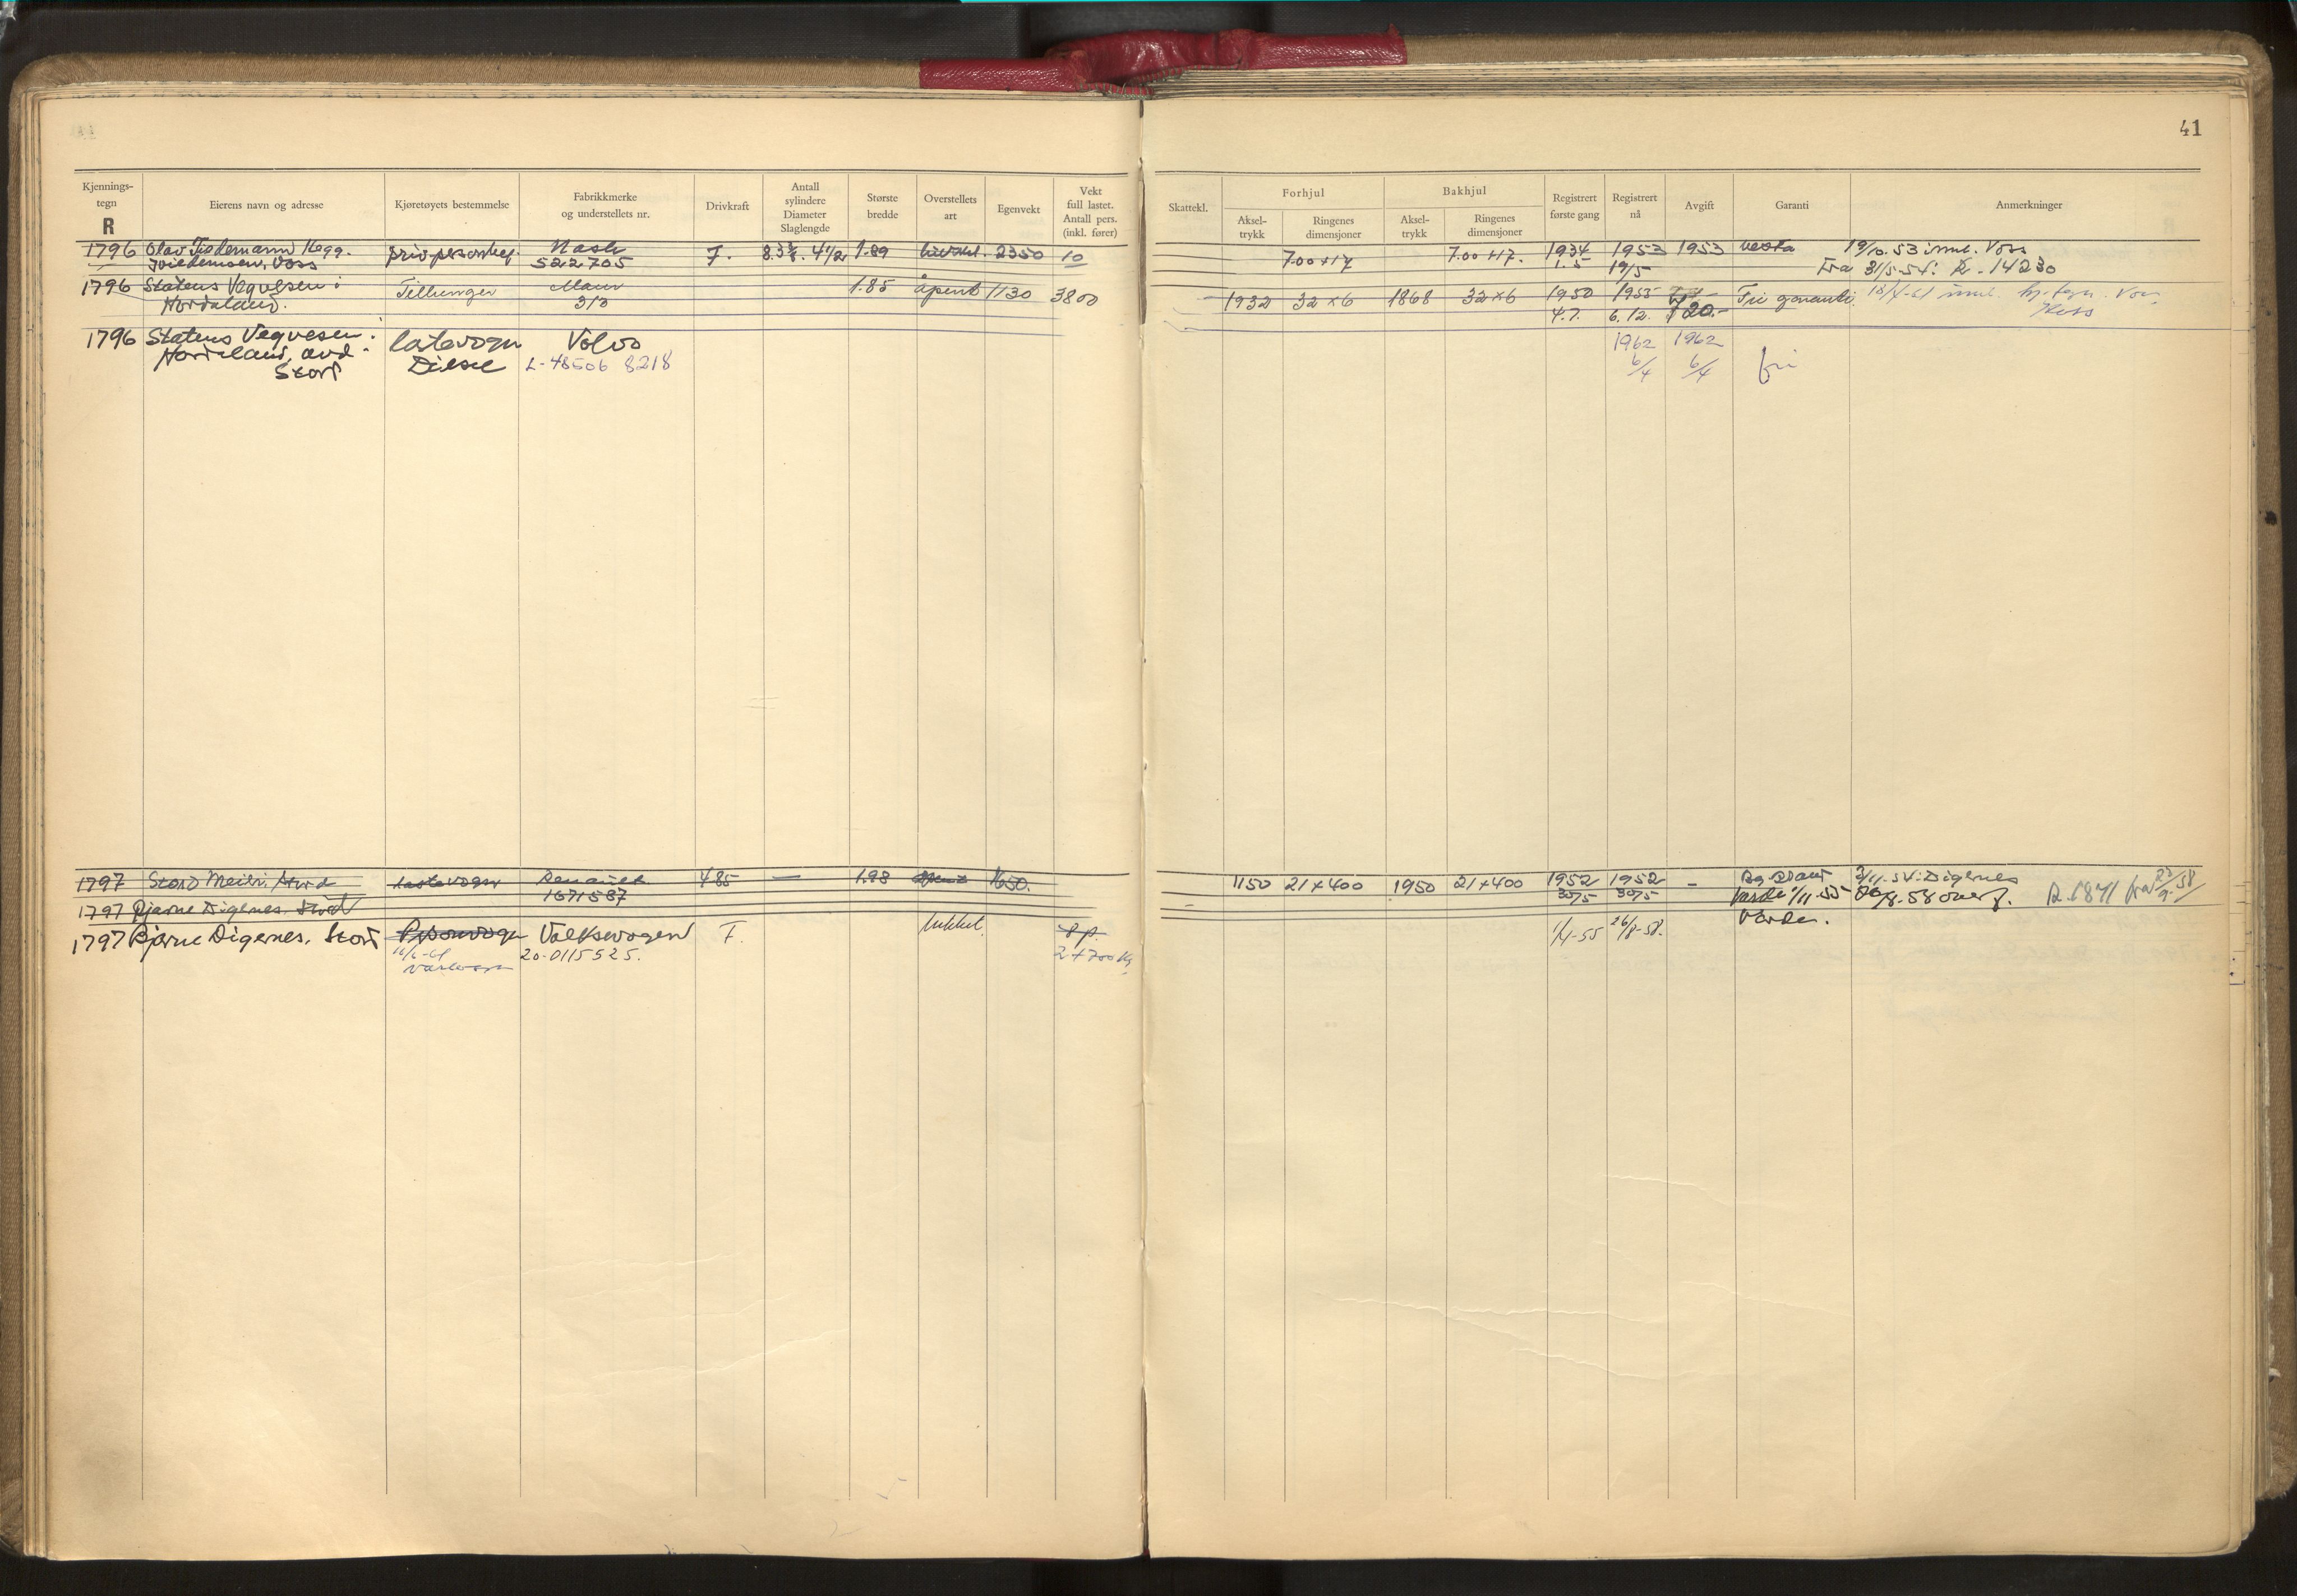 41
Kjennings-
tegn
R
Eierens navn og adresse
Kjøretøyets bestemmelse
Fabrikkmerke
og understellets nr.
Drivkraft
Antall
sylindere
Diameter
Slaglengde
Største
bredde
Overstellets
art
Egenvekt
Vekt
full lastet.
Antall pers.
(inkl. fører)
Skattekl.
Forhjul
Aksel-
trykk
Ringenes
dimensjoner
Bakhjul
Aksel-
trykk
Ringenes
dimensjoner
Registrert
første gang
Registrert
nå
Avgift
Garanti
Anmerkninger
1796 Olav Tiedemann Hegg. Nash 7. 8. 3 1/8. 4 1/2 1.89 2350 10 700x17 7.00x17. 1934 1953 1953 Vesta 19/10.53 innl. Voss
Voss 522705 1.5 19/5 Fra 31/5.54: R-14230
1796 Statens Vegvesen i Tilhenger 1.85 åpent 1130 3800 1932 32x6 1868 32x6 1950 1955 Fri garanti 18/4-61 innl. kj.tegn. Voss
Hordaland. 310 4.7. 6.12. 20.-
1796 Statens Vegvesen i lastevogn Volvo 1962 1962 fri
Hordaland, avd. Diesel L-48506 8218 6/4 6/4
Stord
1797 Stord Meieri. Stord Lastevogn Renault 485 — 1.98 åpent 1650. 1150 21x400 1950 21x400 1952 1952 - 2/11.54. Digenes
1671587 30/5 30/5 Varde 1/11.55 26/8.58 overf. R.1871 fra 23/9-58
1797 Bjarne Digenes. Stord
1797 Bjarne Digenes. Stord Personvogn Volkswagen F. lukket. 8 p. 1/4-55 26/8-58. Varde.
16/6-61 20-0115525. 2+700 kg
Varevogn